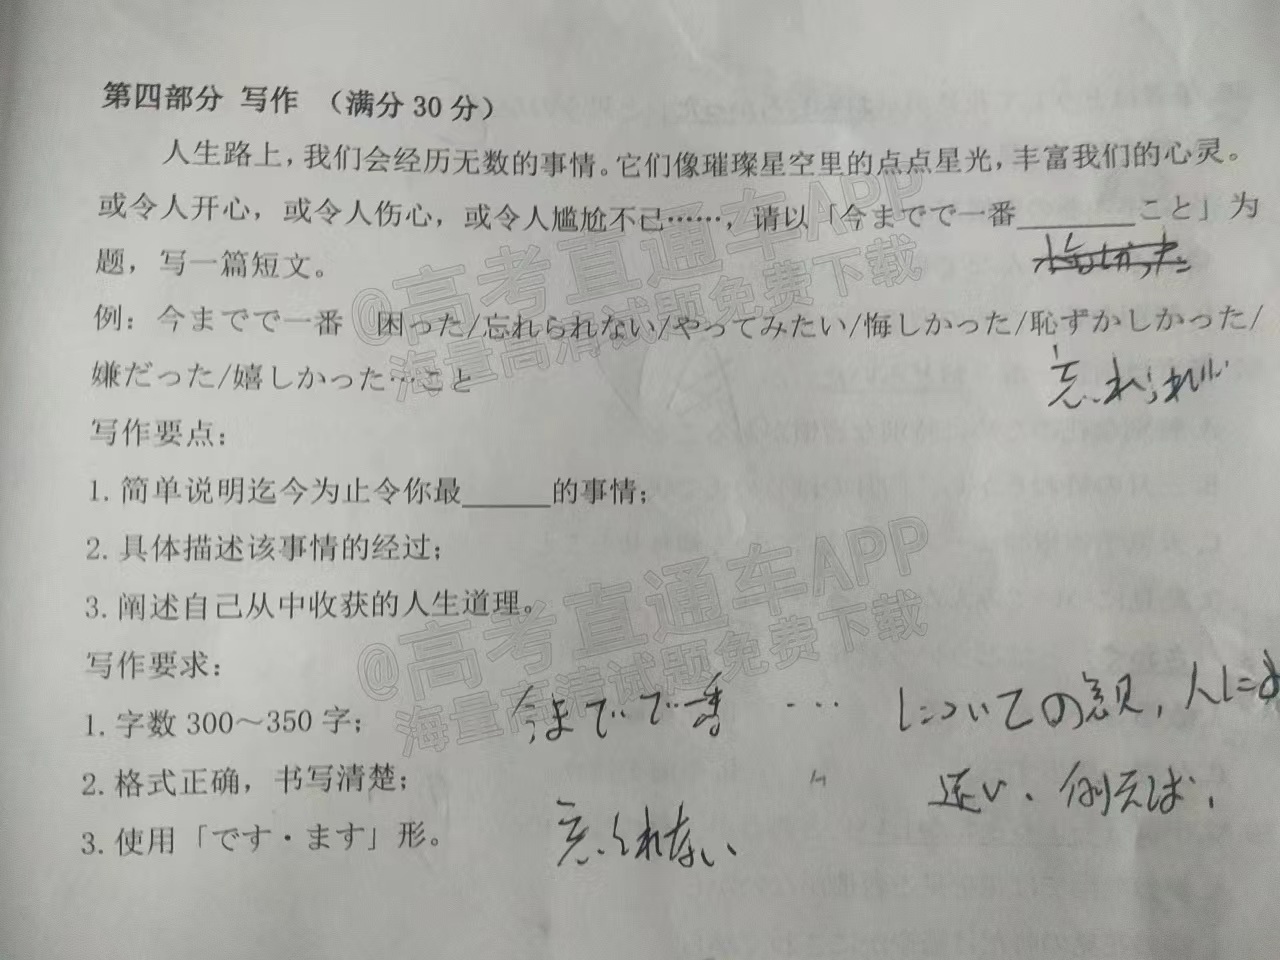 第四部分 写作 （满分30分）
人生路上，我们会经历无数的事情。它们像璀璨星空里的点点星光，丰富我们的心灵。
或令人开心，或令人伤心，或令人尴尬不已……，请以「今までで一番________こと」为
题，写一篇短文。
例：今までで一番 困った/忘れられない/やってみたい/悔しかった/恥ずかしかった/
忘れられ
嫌だった/嬉しかった…こと
写作要点：
1. 简单说明迄今为止令你最______的事情；
2. 具体描述该事情的经过；
3. 阐述自己从中收获的人生道理。
写作要求：
1. 字数300～350字；
今までで一番 … についての意見，人によ
2. 格式正确，书写清楚；
违い、例えば、
3. 使用「です・ます」形。
忘られない、
@高考直通车APP
海量高清试题免费下载
@高考直通车APP
海量高清试题免费下载